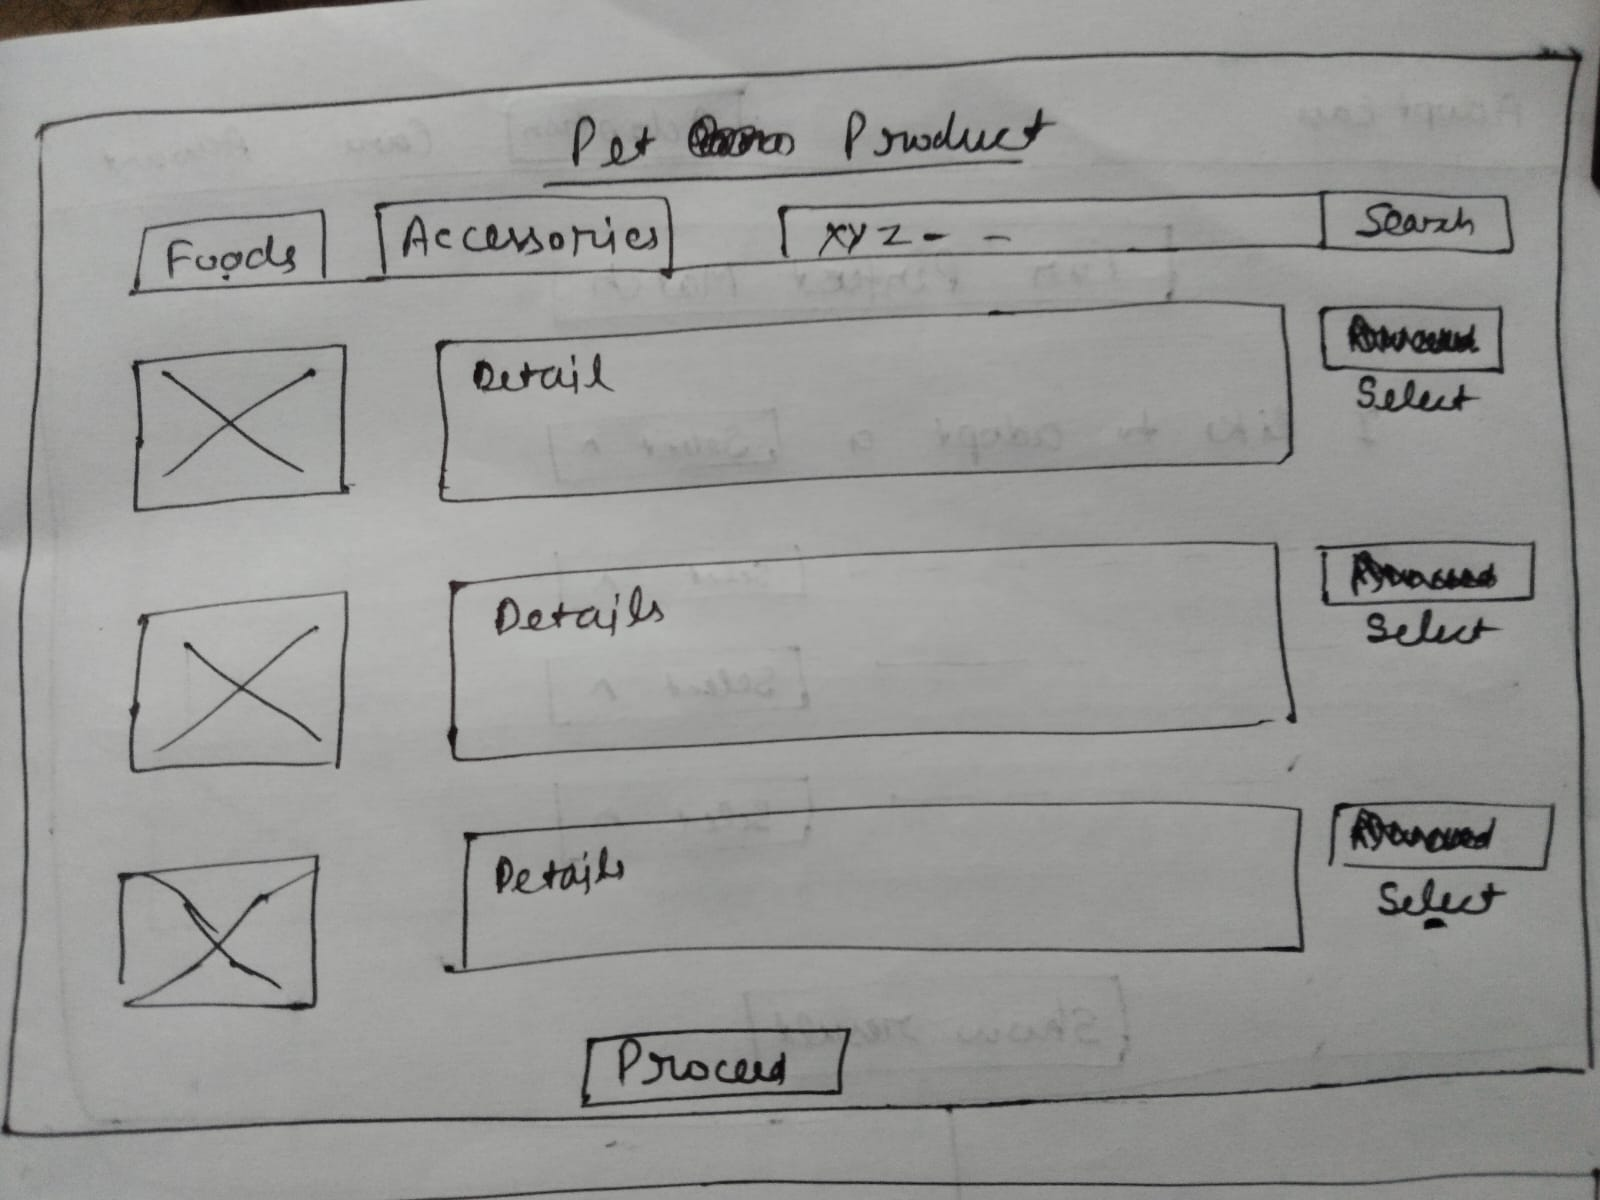 Pet Product
Foods Accessories xyz - - Search
Detail
Select
Details
Select
Details
Select
Proceed